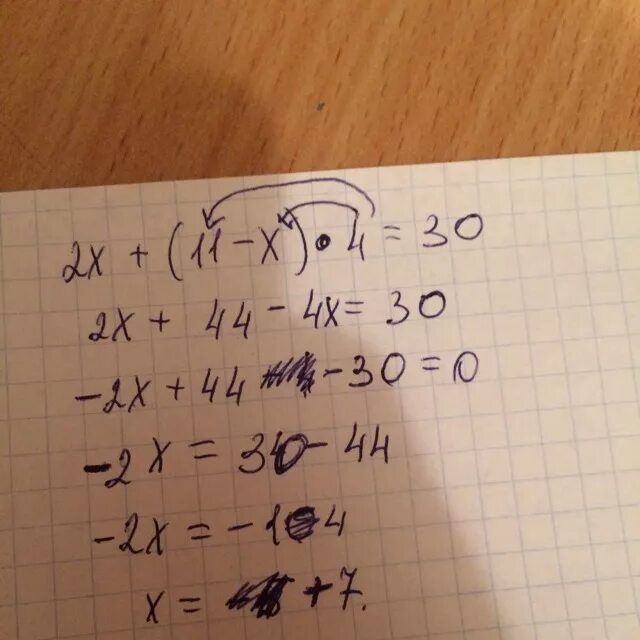 2x + (11 - x) • 4 = 30
2x + 44 - 4x = 30
-2x + 44 - 30 = 0
-2x = 30 - 44
-2x = -14
x = +7.